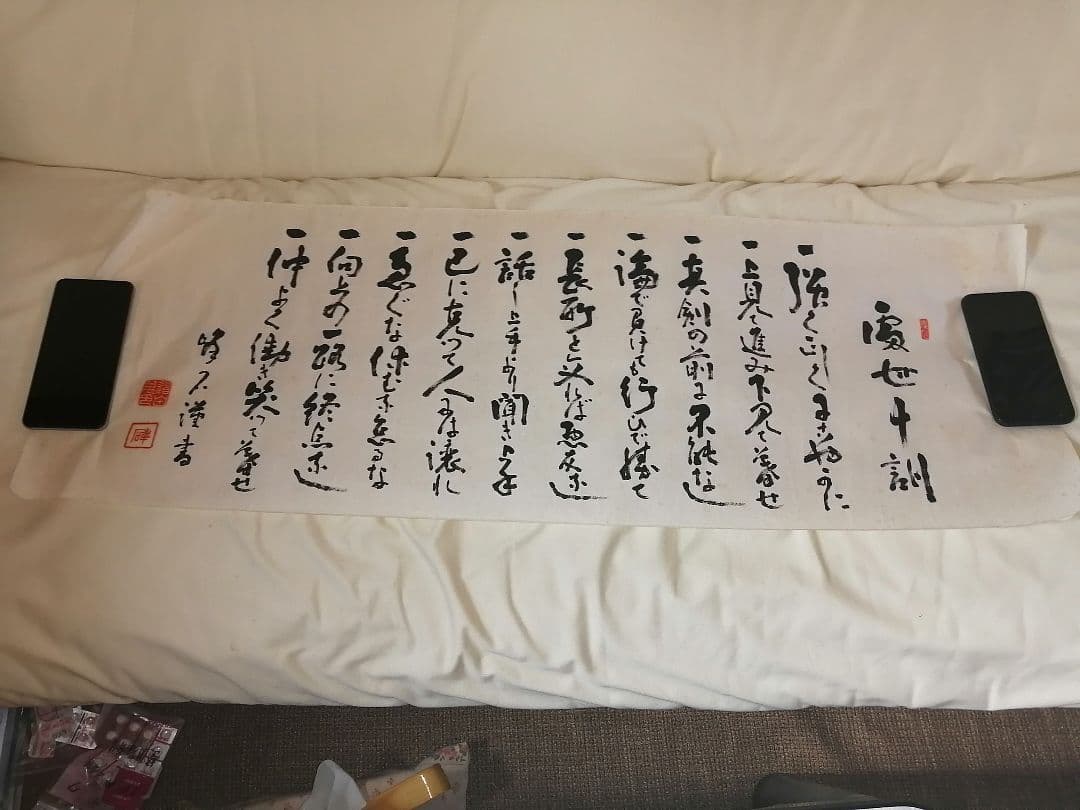 處世十訓
一強く正しくすなほに
一上見て進み下見て暮せ
一真剣の前に不能なし
一論で負けても行ひで勝て
一長所と云へば悪友なし
一話し上手より聞き上手
一己に克って人には譲れ
一急ぐな休むな怠るな
一向上の一路に終点なし
一仲よく働き笑って暮せ
謹書